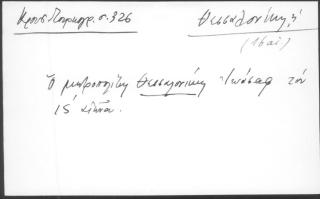 Κρητ. Πατριαρχ. σ. 326
Θεσσαλονίκη
(16 αἰ)
Ὁ μητροπολίτης Θεσσαλονίκης Ἰωάσαφ τὸν
ΙϚ΄ αἰῶνα.